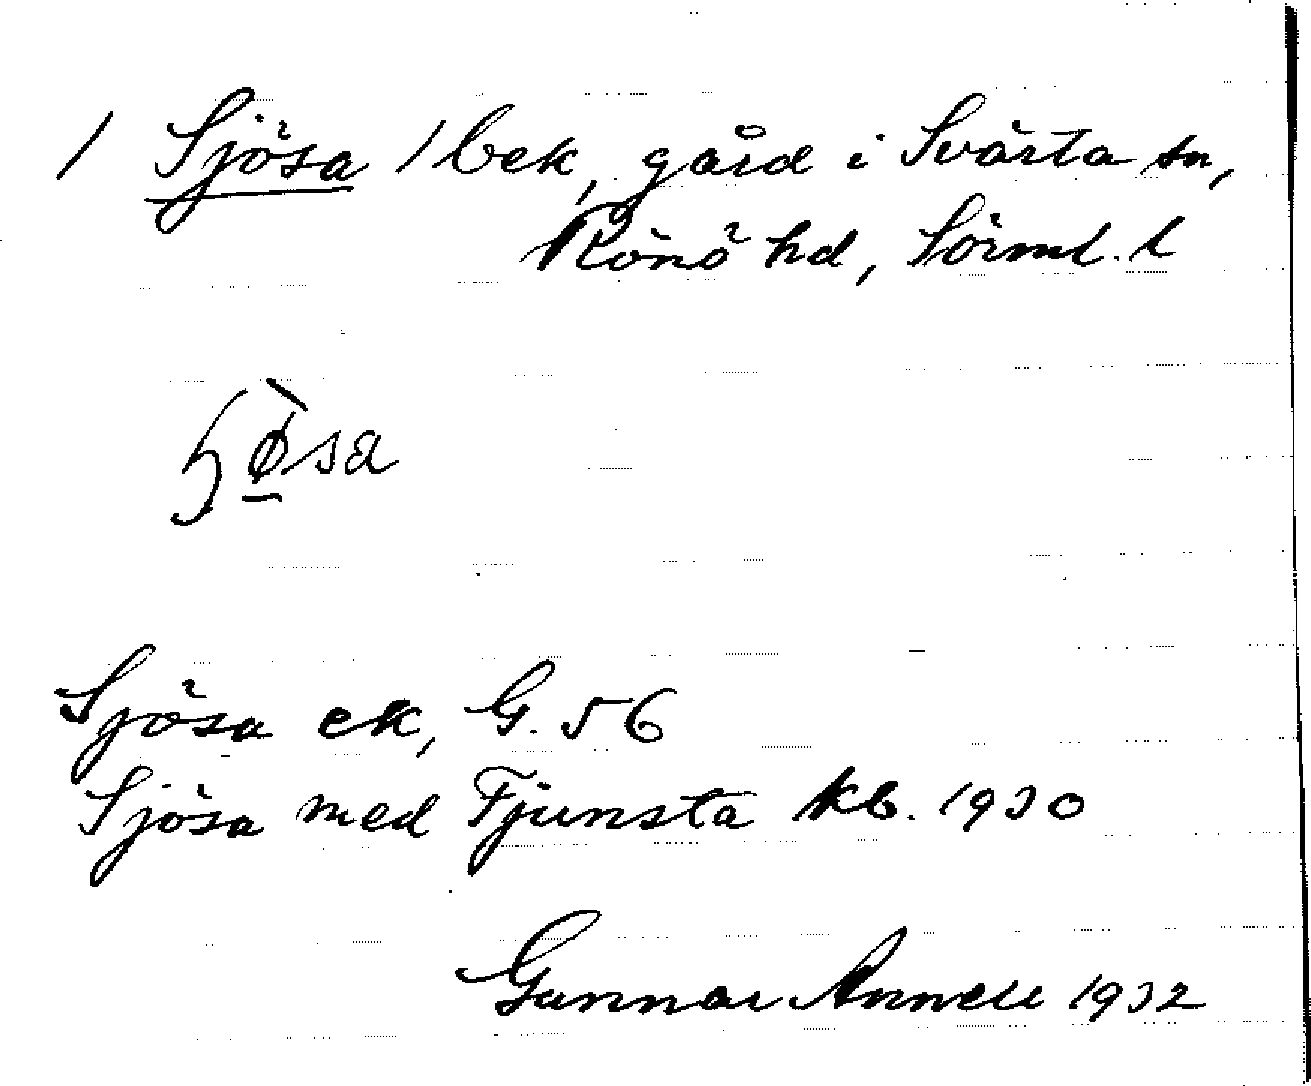 / Sjösa / bek, gård i Svärta sn,
Rönö hd, Sörml. l
ɧø̠̀sa
Sjösa ek, G. 56
Sjösa med Fjunsta kb. 1930
Gunnar Annell 1932